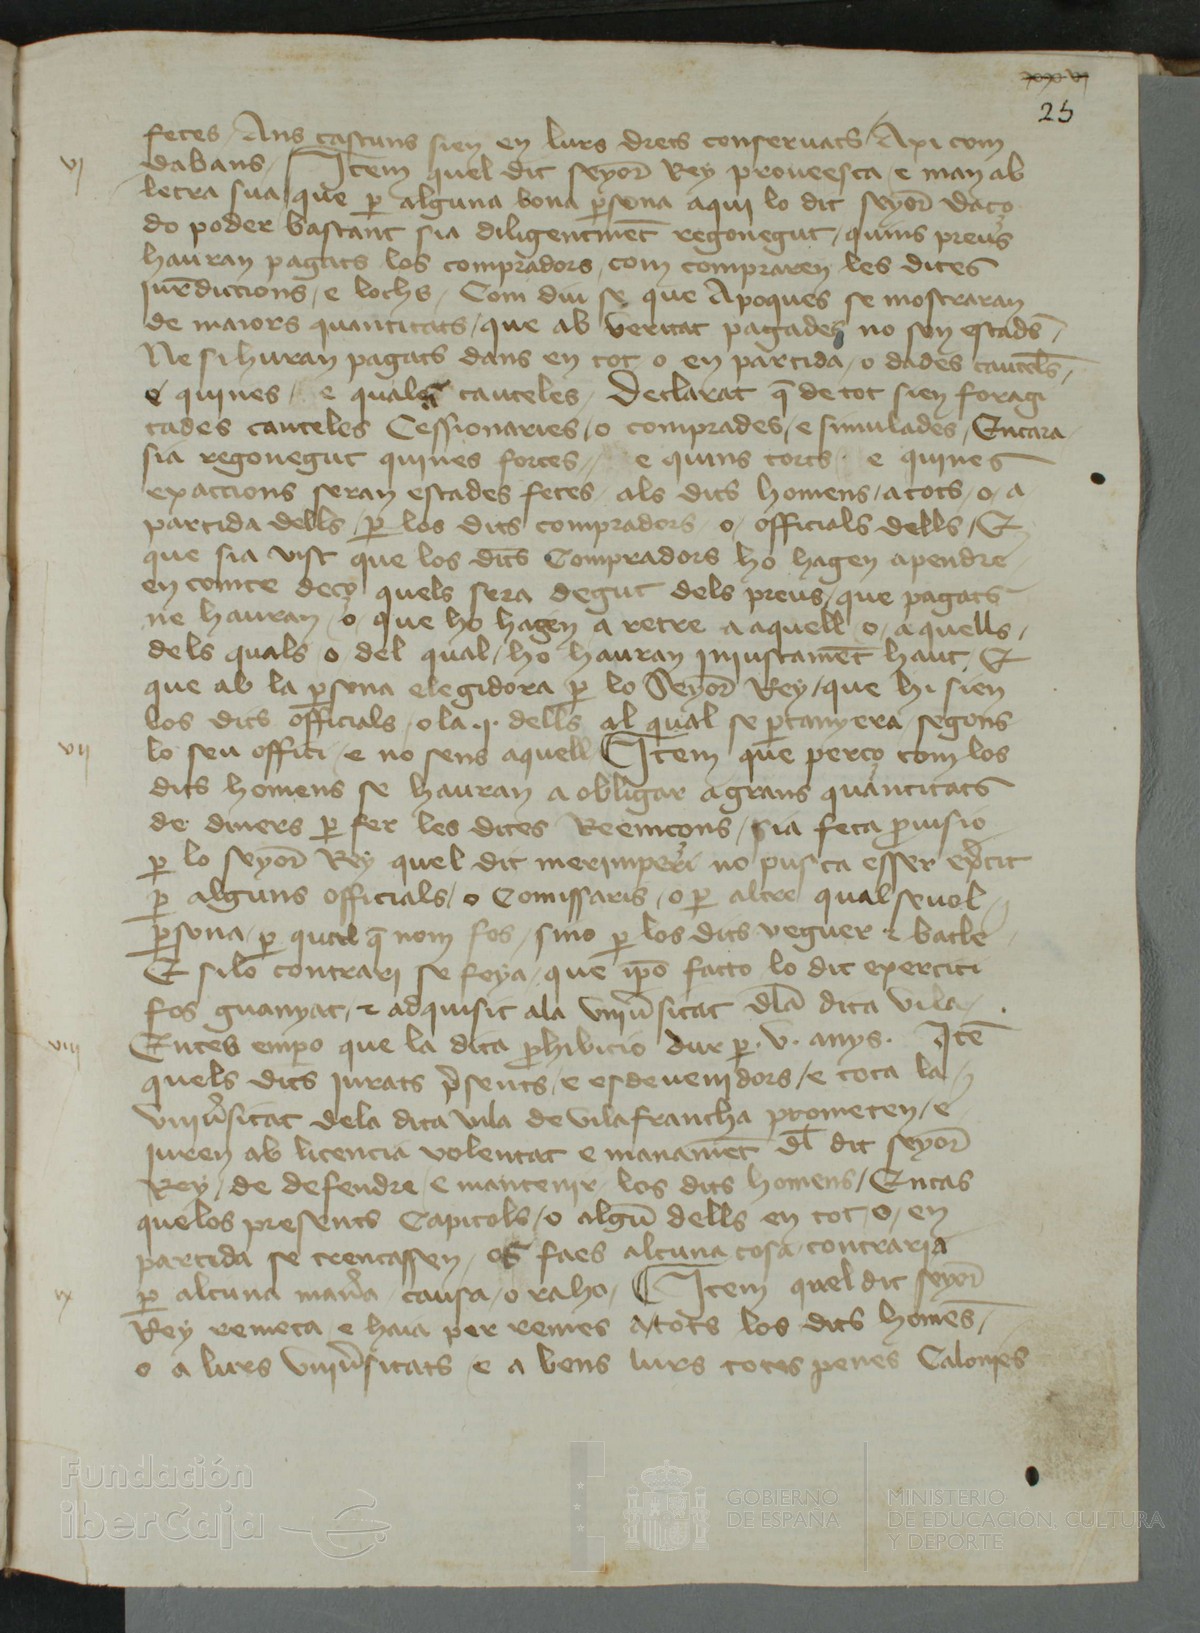 xxxvj
25
fetes / Ans cascuns sien en lurs drets conseruats / Axi com
vj
dabans / Item quel dit seyor Rey proueesca / e man ab
letra sua que p alguna bona psona aqui lo dit seyor daço
do poder bastant sia diligentment regonegut / quins preus
hauran pagats los compradors / com compraren les dites
juredictions / e lochs / Com diu se que Apoques se mostraran
de maiors quantitats / que ab veritat pagades no son estads /
Ne si hauran pagats dans en tot o en partida / o dades cauteles /
e quines / e quals cauteles / Declarat q de tot sien foragi
tades cauteles Cessionaries / o comprades / e simulades / Encara
sia regonegut quines forces / e quins torts e quines
exactions seran estades fetes als dits homens / atots / o / a
partida dells / p los dits compradors o / officials dells / E
que sia vist que los dits Compradors ho hagen apendre
en comte deço quels sera degut dels preus / que pagats
ne hauran / o / que ho hagen a retre a aquell / o / aquells /
dels quals o del qual / ho hauran iniustament haut / E
que ab la psona elegidora p lo Seyor Rey / que hi sien
los dits officials / o la .j. dells al qual se ptanyera segons
vij
lo seu offici / e no sens aquell Item que perço com los
dits homens se hauran a obligar agrans quantitats
de diners p fer les dites Reemçons / sia feta puisio
p lo seyor Rey quel dit merimperi no pusca esser exercit
p alguns officials / o Comissaris / o p altre qual seuol
psona / p qual q nom fos / sino p los dits veguer e batle
E silo contrari se feya / que ipo facto lo dit exerciti
fos guanyat / e adquisit ala vniusitat dla dita vila
viij
Entes empo que la dita phibicio dur p .v. anys. Ite
quels dits jurats psents / e esdeuenidors / e tota la
vniusitat dela dita vila de vilafrancha prometen / e
juren ab licencia volentat e manament dl dit seyor
Rey / de defendre / e mantenir los dits homens / En cas
quelos presents Capitols / o algu dells en tot / o / en
partida se trencassen / os faes alcuna cosa contraria
ix
p alcuna mana / causa / o raho / Item quel dit seyor
Rey remeta / e haia per remes a tots los dits homens /
o a lurs vniusitats e a bens lurs totes penes Calonies
Fundación
iberCaja
GOBIERNO
DE ESPAÑA
MINISTERIO
DE EDUCACION, CULTURA
Y DEPORTE